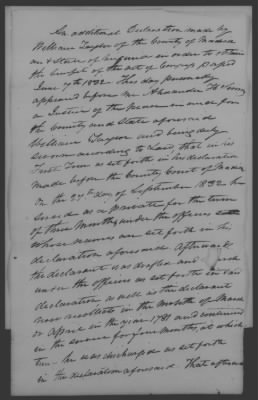 An additional Declaration made by
William Taylor of the County of Madison
and State of Virginia in order to obtain
the benefit of the act of Congress Passed
June 7th 1832. This day personally
appeared before me Alexander H
a Justice of the Peace in and for
the County and State aforesaid
William Taylor and being duly
Sworn according to Law, that in his
first Tour as set forth in his declaration
made before the County Court of Madison
on the 27th day of September 1832 he
served as a private for the term
of three Months under the officers
whose names are set forth in his
declaration aforesaid. Afterwards
the declarant was drafted and
under the officers as set forth in his said
declaration as well as the declarant
now recollects in the Month of March
or April in the year 1781 and continued
in the service for four months, at which
time he was discharged as set forth
in the declaration aforesaid. That afterwards